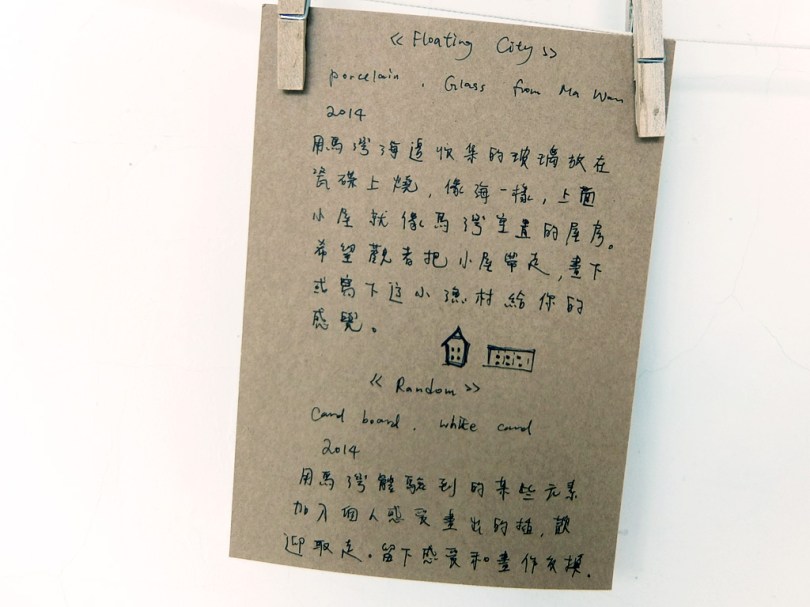 《Floating City》
porcelain, Glass from Ma Wan
2014
用馬灣海邊收集的玻璃放在
瓷碟上燒，像海一樣，上面
小屋就像馬灣空置的屋房。
希望觀者把小屋帶走，畫下
或寫下這小漁村給你的
感覺。
《Random》
Card board, white card
2014
用馬灣體驗到的某些元素
加入個人感受畫出的插，歡
迎取走。留下感受和畫作交換。